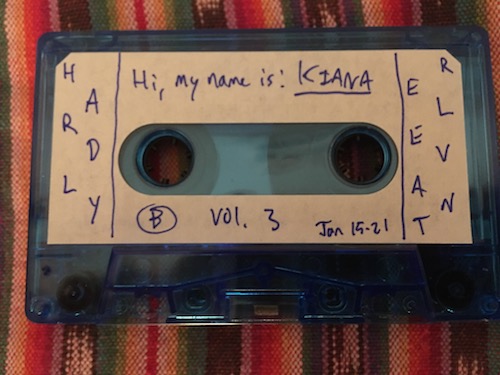 HARDLY
Hi, my name is: KIANA
B Vol. 3 Jan 15-21
RELEVANT